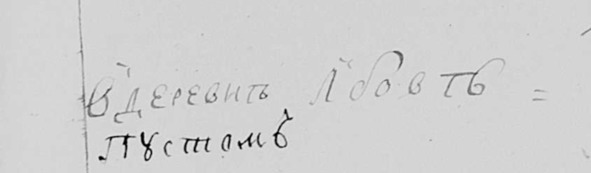 В деревнѣ Лбовѣ =
пꙋстомъ